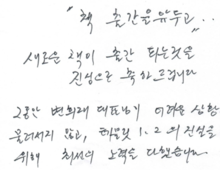 "책 출간을 앞두고"...
새로운 책이 출간 되는것을
진심으로 축하드립니다
그동안 변희재 대표님이 어려운 상황
물러서지 않고, 태블릿 1.2 의 진실을
위해 최선의 노력을 다했습니다.